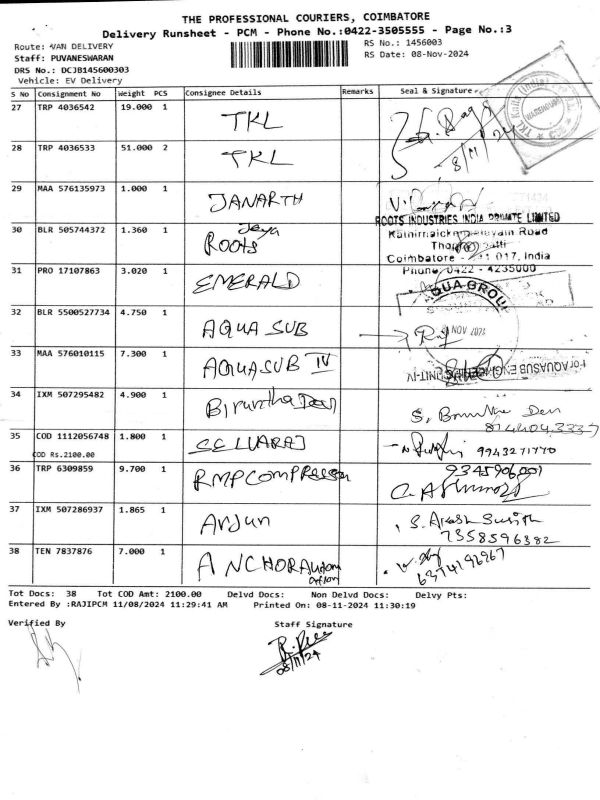 THE PROFESSIONAL COURIERS, COIMBATORE
Delivery Runsheet - PCM - Phone No.:0422-3505555 - Page No.:3
Route: VAN DELIVERY
RS No.: 1456003
Staff: PUVANESWARAN
RS Date: 08-Nov-2024
DRS No.: DCJB145600303
Vehicle: EV Delivery
S No Consignment No Weight PCS Consignee Details Remarks Seal & Signature
27 TRP 4036542 19.000 1 TKL
28 TRP 4036533 51.000 2 TKL 8/11/24
WAREHOUSE
29 MAA 576135973 1.000 1 JANARTH
ROOTS INDUSTRIES INDIA PRIVATE LIMITED
30 BLR 505744372 1.360 1 Jeya Roots
Coimbatore - 641 017, India
Phone: 0422 - 4235000
31 PRO 17107863 3.020 1 EMERALD
AQUA GROUP
32 BLR 5500527734 4.750 1 AQUA SUB
NOV
33 MAA 576010115 7.300 1 AQUASUB IV
For AQUASUB ENGG UNIT-IV
34 IXM 507295482 4.900 1 Biruntha Devi
35 COD 1112056748 1.800 1 SELVARAJ 9943271770
COD Rs.2100.00
36 TRP 6309859 9.700 1 RMP COMPRESSOR 9345906001
37 IXM 507286937 1.865 1 Arjun
7358596382
38 TEN 7837876 7.000 1 ANCHOR 6374196967
Tot Docs: 38 Tot COD Amt: 2100.00 Delvd Docs: Non Delvd Docs: Delvy Pts:
Entered By :RAJIPCM 11/08/2024 11:29:41 AM Printed On: 08-11-2024 11:30:19
Verified By Staff Signature
08/11/24